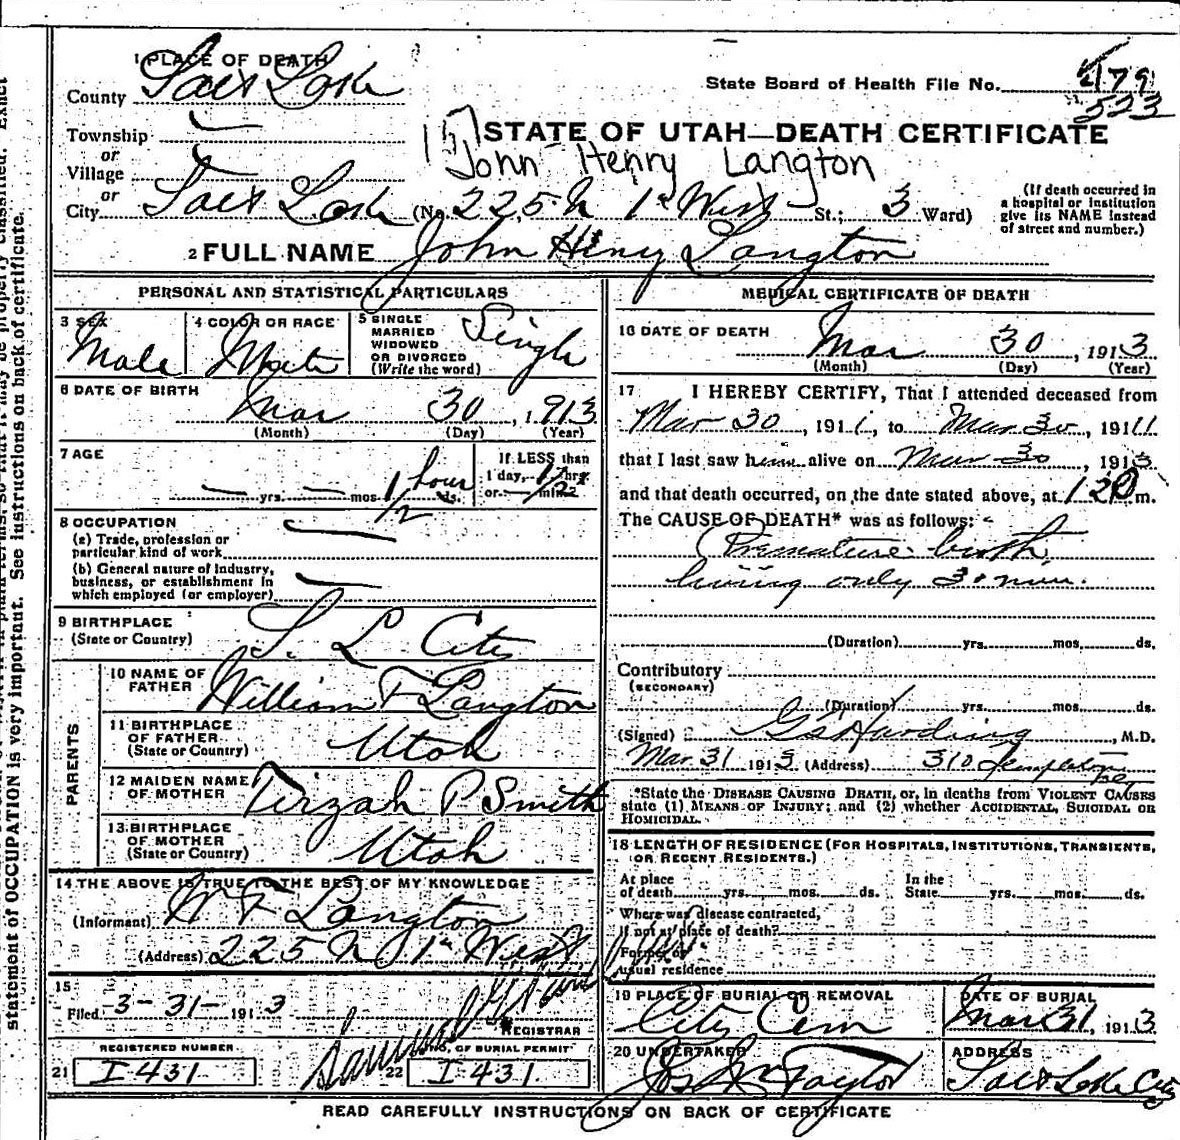 1 PLACE OF DEATH
County Salt Lake
State Board of Health File No. 179
523
Township
or
Village
or
STATE OF UTAH—DEATH CERTIFICATE
John Henry Langton
City Salt Lake (No. 225 N 1st West St.; 3 Ward)
(If death occurred in
a hospital or institution
give its NAME instead
of street and number.)
2 FULL NAME John Henry Langton
PERSONAL AND STATISTICAL PARTICULARS
3 SEX
Male
4 COLOR OR RACE
White
5 SINGLE
MARRIED
WIDOWED
OR DIVORCED
(Write the word)
Single
6 DATE OF BIRTH
Mar 30, 1913
(Month) (Day) (Year)
7 AGE
— yrs. — mos. 1/2 hour ds.
If LESS than
1 day, 1/2 hrs.
or min.
8 OCCUPATION
(a) Trade, profession or
particular kind of work
(b) General nature of industry,
business, or establishment in
which employed (or employer)
9 BIRTHPLACE
(State or Country)
S. L City
PARENTS
10 NAME OF
FATHER
William F Langton
11 BIRTHPLACE
OF FATHER
(State or Country)
Utah
12 MAIDEN NAME
OF MOTHER
Tirzah P Smith
13 BIRTHPLACE
OF MOTHER
(State or Country)
Utah
14 THE ABOVE IS TRUE TO THE BEST OF MY KNOWLEDGE
(Informant) W F Langton
(Address) 225 N 1st West
15
Filed 3-31- 1913
REGISTRAR
REGISTERED NUMBER
21 I 431
NO. OF BURIAL PERMIT
22 I 431
MEDICAL CERTIFICATE OF DEATH
16 DATE OF DEATH
Mar 30, 1913
(Month) (Day) (Year)
17 I HEREBY CERTIFY, That I attended deceased from
Mar 30, 1911, to Mar 30, 1911
that I last saw him alive on Mar 30, 1913
and that death occurred, on the date stated above, at 120 m.
The CAUSE OF DEATH* was as follows:
Premature birth
living only 30 min.
(Duration) yrs. mos. ds.
Contributory
(SECONDARY)
(Duration) yrs. mos. ds.
(Signed) G S Harding, M.D.
Mar. 31 1913 (Address) 310 Templeton
*State the DISEASE CAUSING DEATH, or, in deaths from VIOLENT CAUSES
state (1) MEANS OF INJURY; and (2) whether ACCIDENTAL, SUICIDAL OR
HOMICIDAL.
18 LENGTH OF RESIDENCE (FOR HOSPITALS, INSTITUTIONS, TRANSIENTS,
OR RECENT RESIDENTS.)
At place
of death yrs. mos. ds.
In the
State yrs. mos. ds.
Where was disease contracted,
if not at place of death?
Former or
usual residence
19 PLACE OF BURIAL OR REMOVAL
City Cem
DATE OF BURIAL
Mar 31, 1913
20 UNDERTAKER
Jos Wm Taylor
ADDRESS
Salt Lake City
READ CAREFULLY INSTRUCTIONS ON BACK OF CERTIFICATE
statement of OCCUPATION is very important. See instructions on back of certificate.